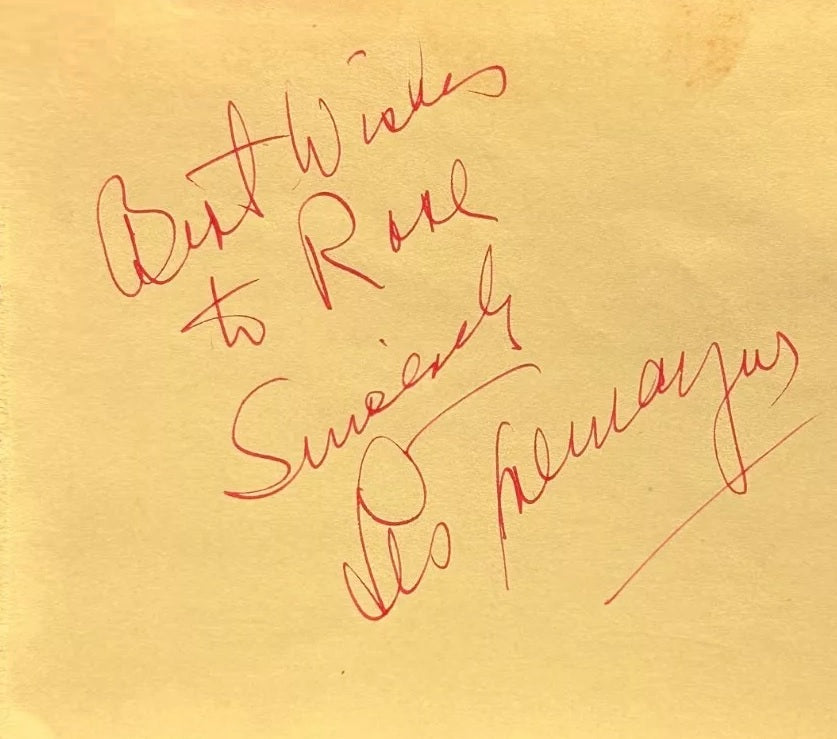 Best Wishes
to Rose
Sincerely
Leo